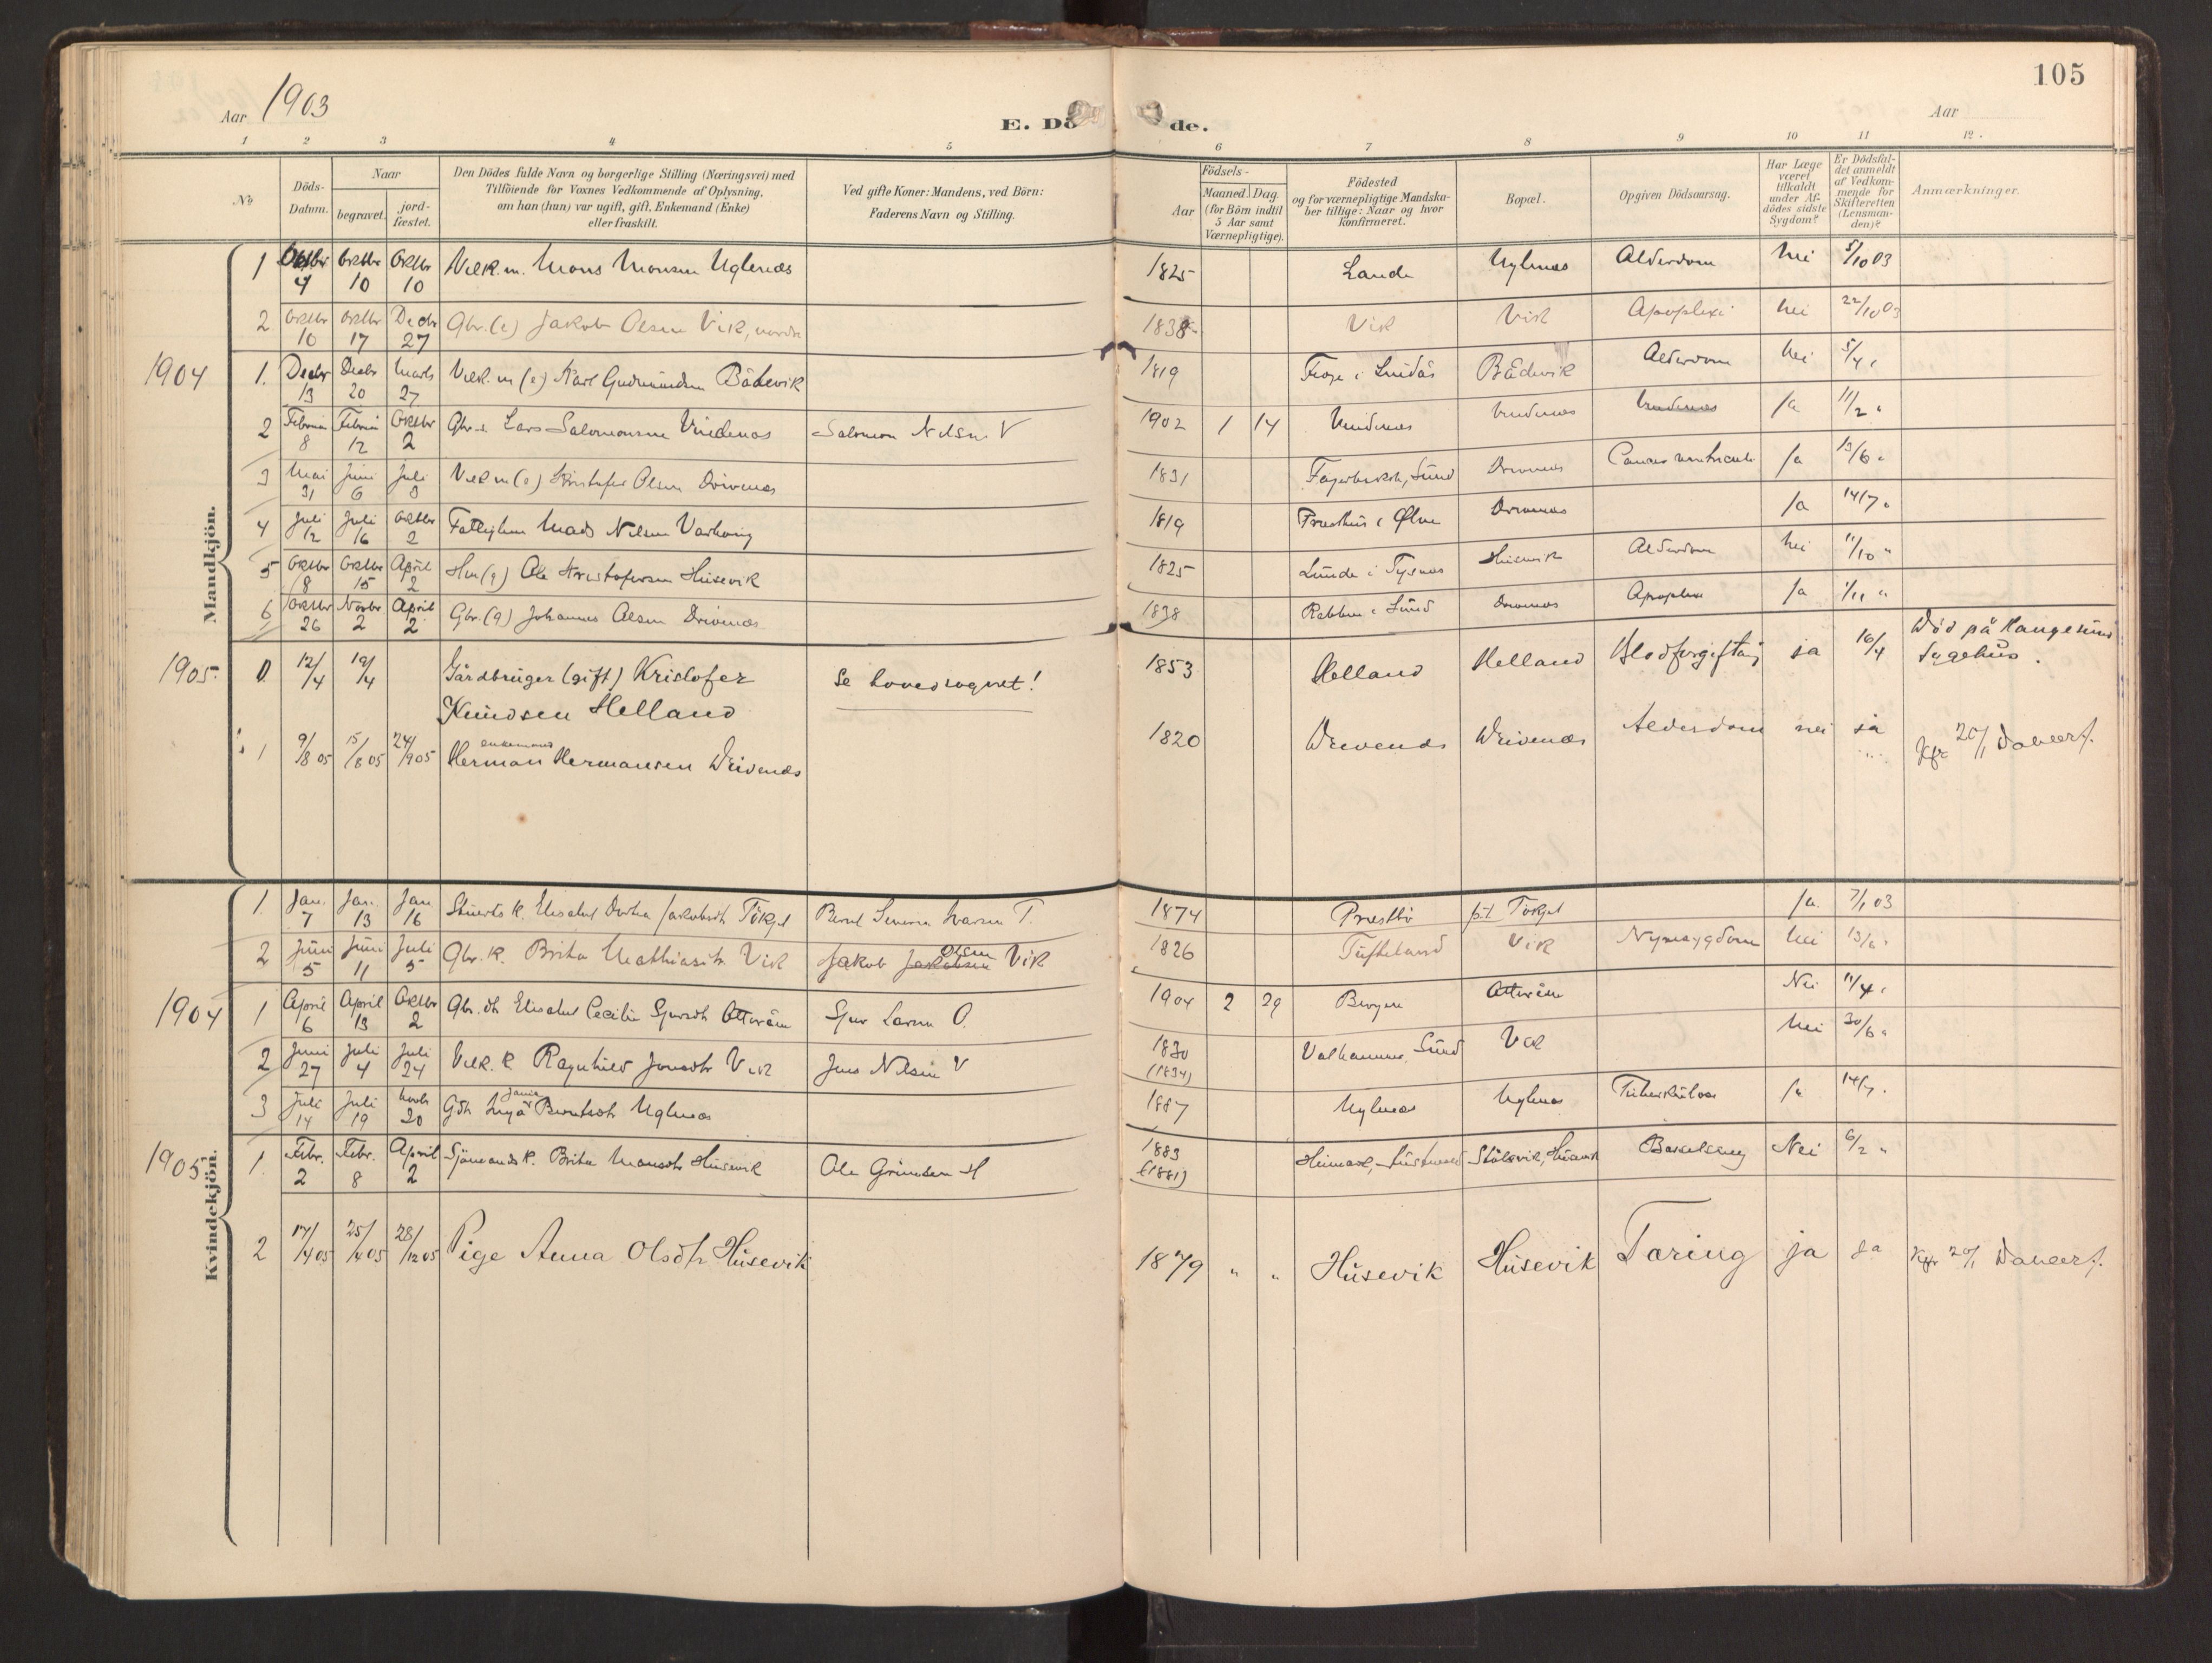 105
Aar 1903
Aar
E. Dö de.
1 2 3 4 5 6 7 8 9 10 11 12.
No
Döds-Datum.
Naar
begravet.
jord-fæstet.
Den Dödes fulde Navn og borgerlige Stilling (Næringsvei) med
Tilföiende for Voxnes Vedkommende af Oplysning,
om han (hun) var ugift, gift, Enkemand (Enke)
eller fraskilt.
Ved gifte Koner: Mandens, ved Börn:
Faderens Navn og Stilling.
Födsels-
Aar
Maaned. Dag.
(for Börn indtil
5 Aar samt
Værnepligtige).
Födested
og for værnepligtige Mandska-
ber tillige: Naar og hvor
konfirmeret.
Bopæl.
Opgiven Dödsaarsag.
Har Læge
været
tilkaldt
under Af-
dödes sidste
Sygdom?
Er Dödsfal-
det anmeldt
af Vedkom-
mende for
Skifteretten
(Lensman-
den)?
Anmærkninger.
Mandkjön.
1 Oktbr 4 Oktbr 10 Oktbr 10 Velk.m. Mons Monsen Uglenæs 1825 Lande Uglenæs Alderdom Nei 5/10 03
2 Oktbr 10 Oktbr 17 Decbr 27 Gbr. (e) Jakob Olsen Vik, nordre 1838 Vik Vik Apoplexi nei 22/10 03
1904
1. Decbr 13 Decbr 20 Marts 27 Velk.m (e) Karl Gudmundsen Bådevik 1819 Frøse i Lindås Bådevik Alderdom Nei 5/4 "
2 Februar 8 Februar 12 Oktbr 2 Gbr.s Lars Salomonsen Vindenæs Salomon Nilsen V 1902 1 14 Vindenæs Vindenæs Vindenæs Ja 11/2 "
3 Mai 31 Juni 6 Juli 3 Velk m (e) Kristofer Olsen Drivenæs 1831 Fagerbakk, Sund Drivenæs Cancer ventriculi Ja 13/6 "
4 Juli 12 Juli 16 Oktbr 2 Fattiglem Mads Nilsen Varhaug 1819 Presthus i Ølve Drivenæs Ja 14/7 "
5 Oktbr 8 Oktbr 15 April 2 Hm (g) Ole Kristofersen Husevik 1825 Lunde i Tysnæs Husevik Alderdom Nei 11/10 "
6 Oktbr 26 Novbr 2 April 2 Gbr. (g) Johannes Olsen Drivenæs 1838 Rabben i Sund Drivenæs Apoplexi Ja 1/11 "
1905
0. 12/4 19/4 Gårdbruger (gift) Kristofer
Knudsen Helland
Se hovedsognet! 1853 Helland Helland Blodforgiftnig ja 16/4 Död på Haugesund
Sygehus.
1 9/8 05 15/8 05 24/9 05 enkemand
Herman Hermansen Drivenæs 1820 Drivenæs Drivenæs Alderdom nei ja 20/1 Daveert.
Kvindekjön.
1. Jan. 7 Jan. 13 Jan 16 Stuerts k. Elisabet Dortea Jakobsdt Tökjel Bernt Severin Larsen T. 1874 Prestbö p.t. Tökjel Ja 7/1 03
2 Juni 5 Juni 11 Juli 5 Gbr. K. Brita Mathiasdtr Vik Jakob Jakobsen Olsen Vik 1826 Tufteland Vik Nyresygdom Nei 13/6 "
1904
1 April 6 April 13 Oktbr 2 Gbr. dt Elisabet Cecilie Sjursdtr Otteråen Sjur Larsen O. 1904 2 29 Bergen Otteråen Nei 11/4 "
2 Juni 27 Juli 4 Juli 24 Velk. k Ragnhild Jonsdtr Vik Jens Nilsen V 1830
(1834) Valhammer, Sund Vik Nei 30/6 "
3 Juli 14 Juli 19 Novbr 20 Gdtr Inga Janna Berntsdtr Uglenæs 1887 Uglenæs Uglenæs Tuberkulose Ja 14/7.
1905
1. Febr. 2 Febr. 8 April 2 Sjömands k. Brita Monsdtr Husevik Ole Grimsen H 1883
(1881) Heimark, Austevold Stålevik, Husevik Barselseng Nei 6/2 "
2 17/4 05 25/4 05 28/12 05 Pige Anna Olsdtr Husevik 1879 " " Husevik Husevik Tæring ja ja 20/1 Daveert.